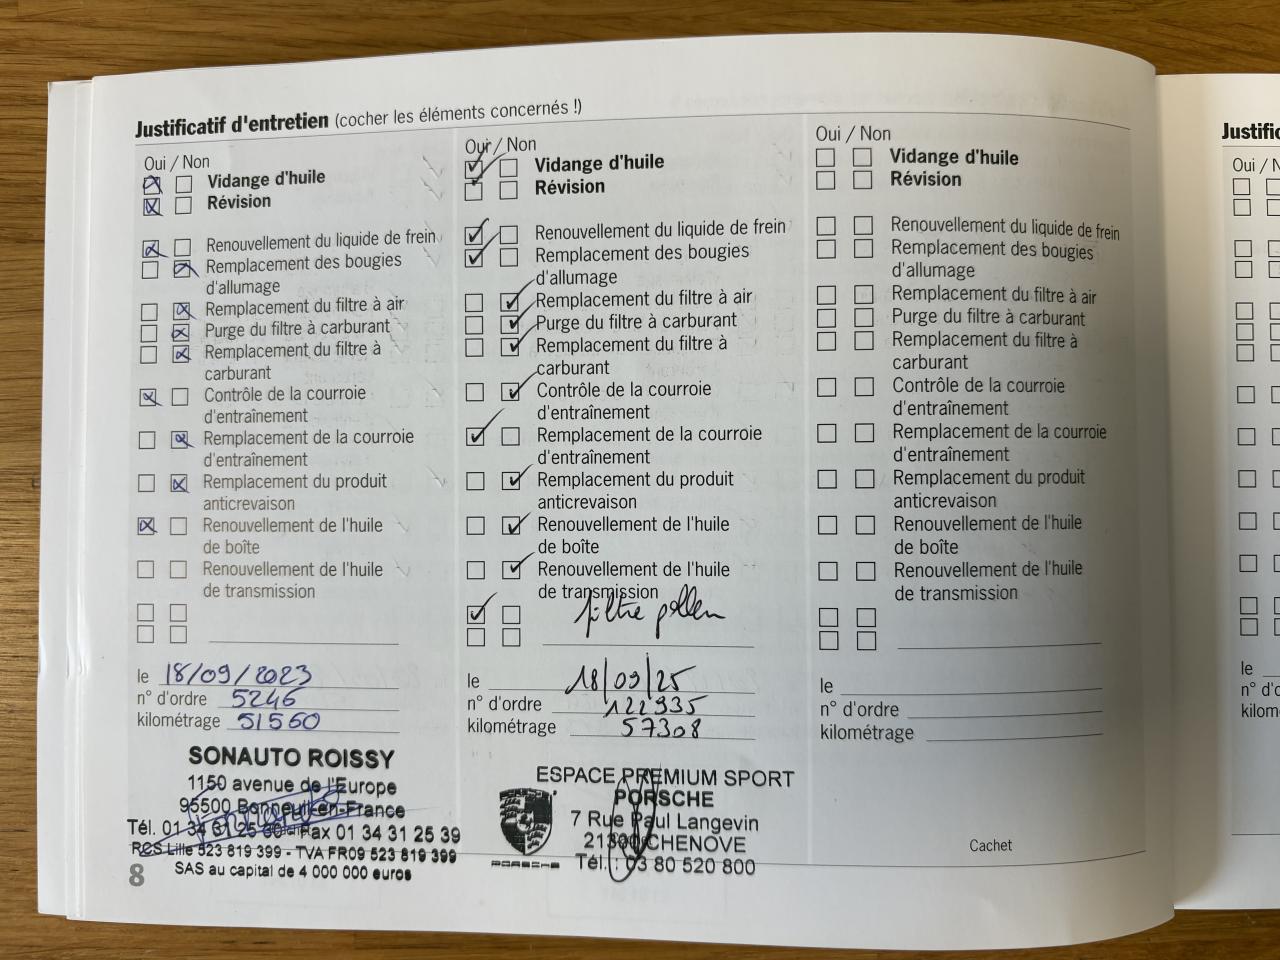 Justificatif d'entretien (cocher les éléments concernés !)
Oui / Non
Vidange d'huile
Révision
Renouvellement du liquide de frein
Remplacement des bougies
d'allumage
Remplacement du filtre à air
Purge du filtre à carburant
Remplacement du filtre à
carburant
Contrôle de la courroie
d'entraînement
Remplacement de la courroie
d'entraînement
Remplacement du produit
anticrevaison
Renouvellement de l'huile
de boîte
Renouvellement de l'huile
de transmission
le 18/09/2023
n° d'ordre 5246
kilométrage 51560
SONAUTO ROISSY
1150 avenue de l'Europe
95500 Bonneuil-en-France
Tél. 01 34 31 25 30 Fax 01 34 31 25 39
RCS Lille 523 819 399 - TVA FR09 523 819 399
SAS au capital de 4 000 000 euros
8
Oui / Non
Vidange d'huile
Révision
Renouvellement du liquide de frein
Remplacement des bougies
d'allumage
Remplacement du filtre à air
Purge du filtre à carburant
Remplacement du filtre à
carburant
Contrôle de la courroie
d'entraînement
Remplacement de la courroie
d'entraînement
Remplacement du produit
anticrevaison
Renouvellement de l'huile
de boîte
Renouvellement de l'huile
de transmission
filtre pollen
le 18/09/25
n° d'ordre 122935
kilométrage 57308
ESPACE PREMIUM SPORT
PORSCHE
7 Rue Paul Langevin
21300 CHENOVE
Tél. : 03 80 520 800
PORSCHE
Oui / Non
Vidange d'huile
Révision
Renouvellement du liquide de frein
Remplacement des bougies
d'allumage
Remplacement du filtre à air
Purge du filtre à carburant
Remplacement du filtre à
carburant
Contrôle de la courroie
d'entraînement
Remplacement de la courroie
d'entraînement
Remplacement du produit
anticrevaison
Renouvellement de l'huile
de boîte
Renouvellement de l'huile
de transmission
le
n° d'ordre
kilométrage
Cachet
Justific
Oui / N
le
n° d'o
kilom